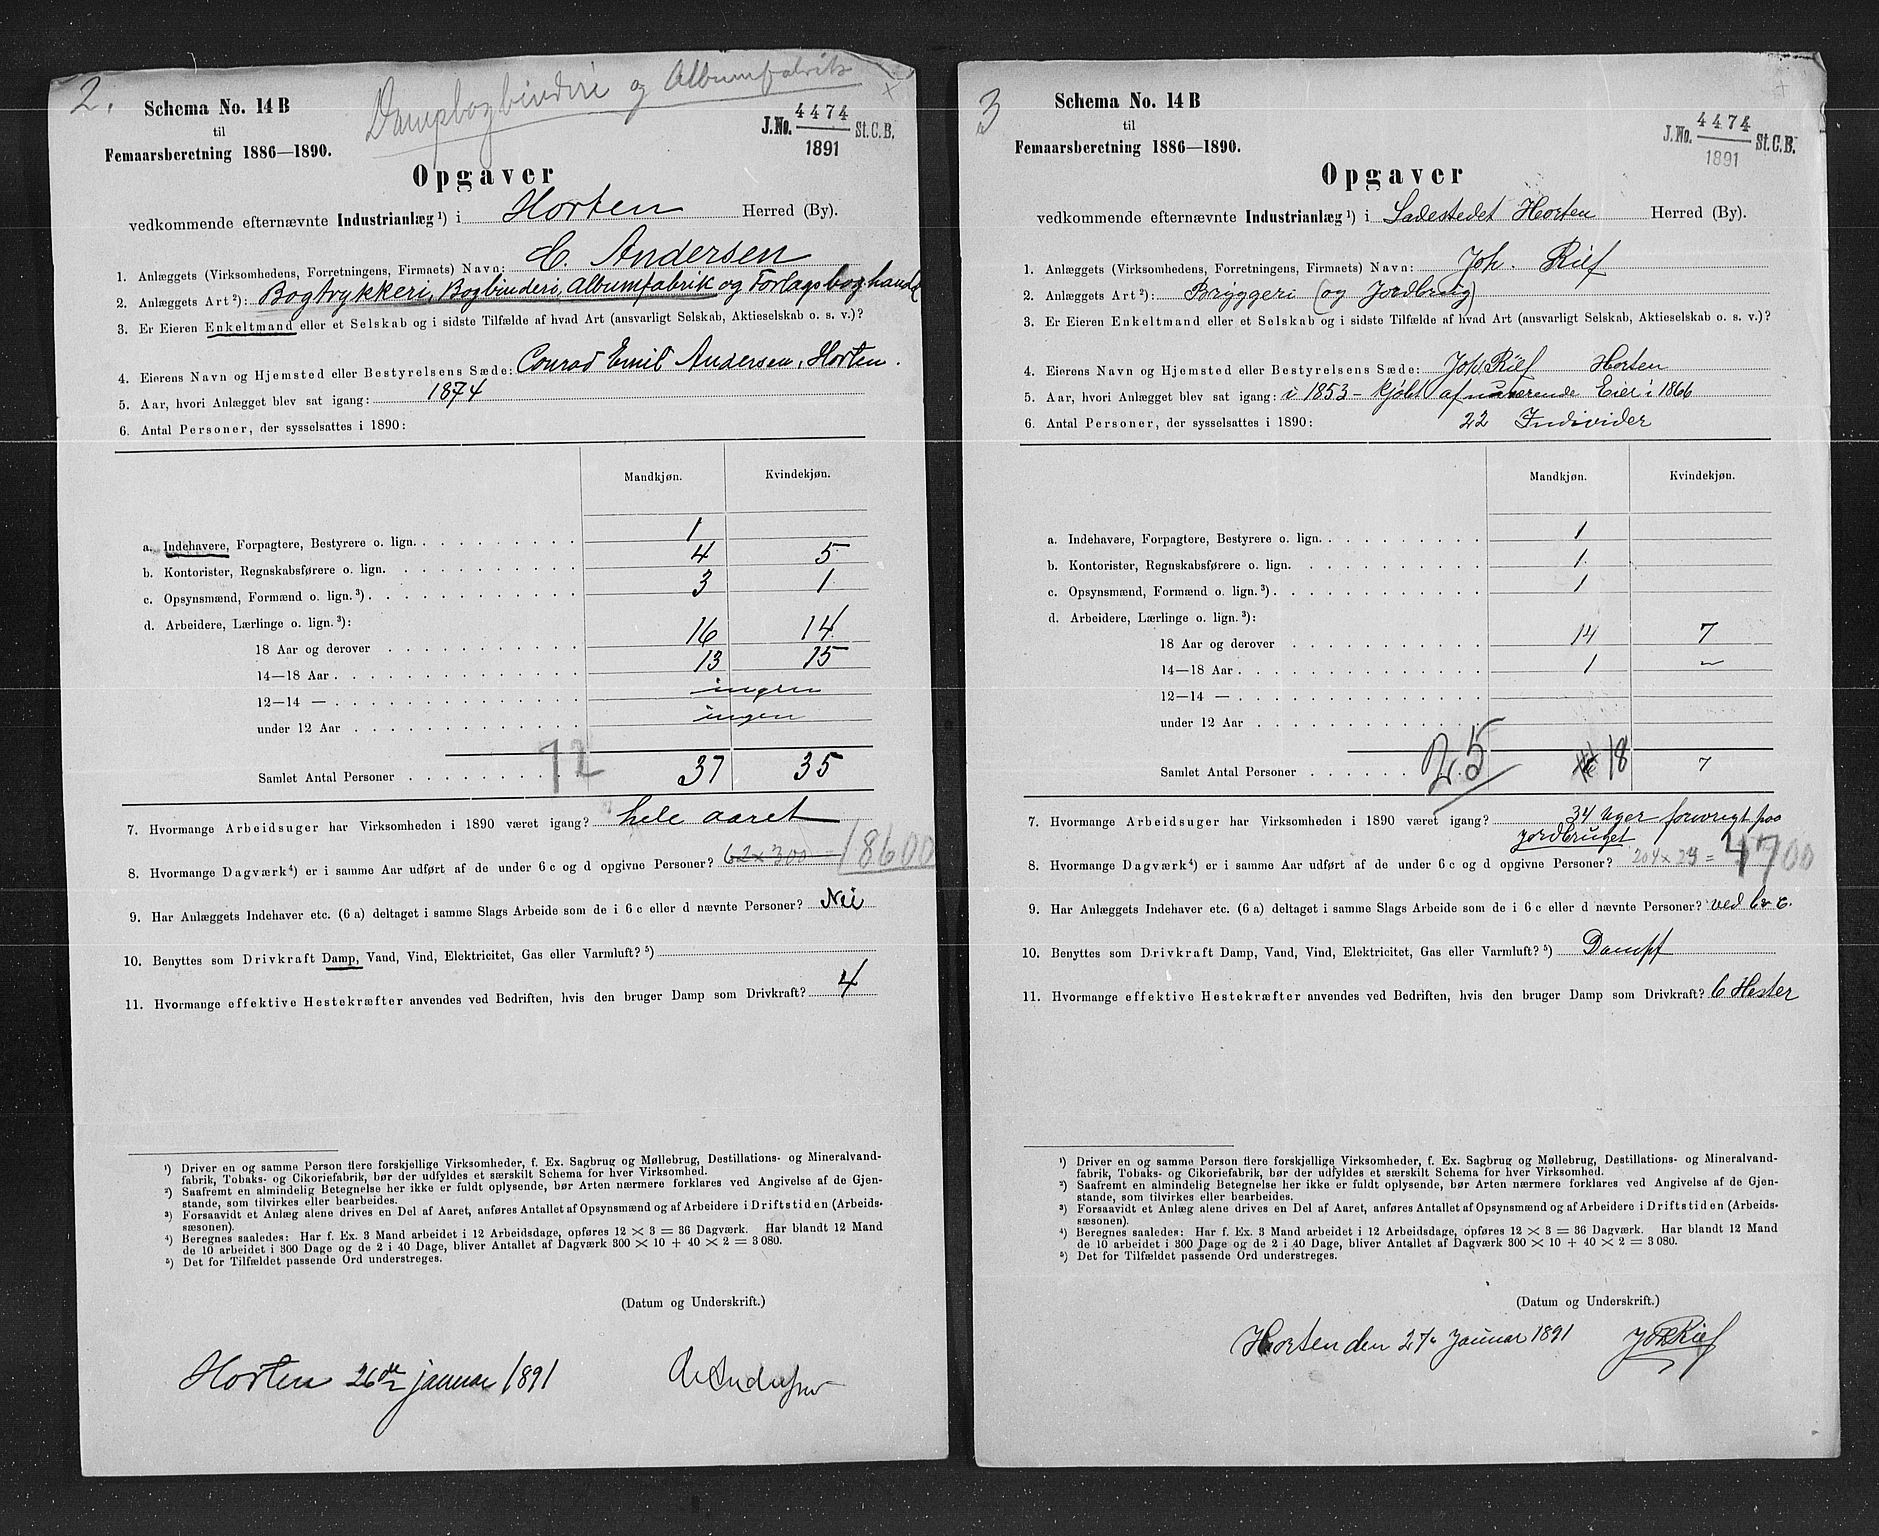 2.
Dampbogbinderi og Albumfabrik
Schema No. 14 B
til
Femaarsberetning 1886—1890.
J.No. 4474 St.C.B.
1891
Opgaver
vedkommende efternævnte Industrianlæg ¹) i Horten Herred (By).
1. Anlæggets (Virksomhedens, Forretningens, Firmaets) Navn: C. Andersen
2. Anlæggets Art ²): Bogtrykkeri, Bogbinderi, Albumfabrik og Forlagsboghandel
3. Er Eieren Enkeltmand eller et Selskab og i sidste Tilfælde af hvad Art (ansvarligt Selskab, Aktieselskab o. s. v.)?
4. Eierens Navn og Hjemsted eller Bestyrelsens Sæde: Conrad Emil Andersen, Horten.
5. Aar, hvori Anlægget blev sat igang: 1874
6. Antal Personer, der sysselsattes i 1890:
Mandkjøn. Kvindekjøn.
a. Indehavere, Forpagtere, Bestyrere o. lign. 1
b. Kontorister, Regnskabsførere o. lign. 4 5
c. Opsynsmænd, Formænd o. lign. ³) 3 1
d. Arbeidere, Lærlinge o. lign. ³):
18 Aar og derover 16 14
14—18 Aar 13 15
12—14 — ingen
under 12 Aar ingen
Samlet Antal Personer 72 37 35
7. Hvormange Arbeidsuger har Virksomheden i 1890 været igang? hele aaret
8. Hvormange Dagværk ⁴) er i samme Aar udført af de under 6 c og d opgivne Personer? 62 x 300 18600
9. Har Anlæggets Indehaver etc. (6 a) deltaget i samme Slags Arbeide som de i 6 c eller d nævnte Personer? Nei
10. Benyttes som Drivkraft Damp, Vand, Vind, Elektricitet, Gas eller Varmluft? ⁵)
11. Hvormange effektive Hestekræfter anvendes ved Bedriften, hvis den bruger Damp som Drivkraft? 4
¹) Driver en og samme Person flere forskjellige Virksomheder, f. Ex. Sagbrug og Møllebrug, Destillations- og Mineralvand-
fabrik, Tobaks- og Cikoriefabrik, bør der udfyldes et særskilt Schema for hver Virksomhed.
²) Saafremt en almindelig Betegnelse her ikke er fuldt oplysende, bør Arten nærmere forklares ved Angivelse af de Gjen-
stande, som tilvirkes eller bearbeides.
³) Forsaavidt et Anlæg alene drives en Del af Aaret, anføres Antallet af Opsynsmænd og af Arbeidere i Driftstiden (Arbeids-
sæsonen).
⁴) Beregnes saaledes: Har f. Ex. 3 Mand arbeidet i 12 Arbeidsdage, opføres 12 × 3 = 36 Dagværk. Har blandt 12 Mand
de 10 arbeidet i 300 Dage og de 2 i 40 Dage, bliver Antallet af Dagværk 300 × 10 + 40 × 2 = 3 080.
⁵) Det for Tilfældet passende Ord understreges.
(Datum og Underskrift.)
Horten 26de januar 1891 C Andersen
3
Schema No. 14 B
til
Femaarsberetning 1886—1890.
J.No. 4474 St.C.B.
1891
Opgaver
vedkommende efternævnte Industrianlæg ¹) i Ladestedet Horten Herred (By).
1. Anlæggets (Virksomhedens, Forretningens, Firmaets) Navn: Joh. Riis
2. Anlæggets Art ²): Bryggeri (og Jordbrug)
3. Er Eieren Enkeltmand eller et Selskab og i sidste Tilfælde af hvad Art (ansvarligt Selskab, Aktieselskab o. s. v.)?
4. Eierens Navn og Hjemsted eller Bestyrelsens Sæde: Joh. Riis Horten
5. Aar, hvori Anlægget blev sat igang: i 1853 – kjøbt af nuværende Eier i 1866
6. Antal Personer, der sysselsattes i 1890: 22 Individer
Mandkjøn. Kvindekjøn.
a. Indehavere, Forpagtere, Bestyrere o. lign. 1
b. Kontorister, Regnskabsførere o. lign. 1
c. Opsynsmænd, Formænd o. lign. ³) 1
d. Arbeidere, Lærlinge o. lign. ³):
18 Aar og derover 14 7
14—18 Aar 1 –
12—14 —
under 12 Aar
Samlet Antal Personer 25 18 7
7. Hvormange Arbeidsuger har Virksomheden i 1890 været igang? 34 Uger forøvrigt paa
jordbruget
8. Hvormange Dagværk ⁴) er i samme Aar udført af de under 6 c og d opgivne Personer? 204 x 23 = 4700
9. Har Anlæggets Indehaver etc. (6 a) deltaget i samme Slags Arbeide som de i 6 c eller d nævnte Personer? ved
10. Benyttes som Drivkraft Damp, Vand, Vind, Elektricitet, Gas eller Varmluft? ⁵) Dampf
11. Hvormange effektive Hestekræfter anvendes ved Bedriften, hvis den bruger Damp som Drivkraft? 6 Hester
¹) Driver en og samme Person flere forskjellige Virksomheder, f. Ex. Sagbrug og Møllebrug, Destillations- og Mineralvand-
fabrik, Tobaks- og Cikoriefabrik, bør der udfyldes et særskilt Schema for hver Virksomhed.
²) Saafremt en almindelig Betegnelse her ikke er fuldt oplysende, bør Arten nærmere forklares ved Angivelse af de Gjen-
stande, som tilvirkes eller bearbeides.
³) Forsaavidt et Anlæg alene drives en Del af Aaret, anføres Antallet af Opsynsmænd og af Arbeidere i Driftstiden (Arbeids-
sæsonen).
⁴) Beregnes saaledes: Har f. Ex. 3 Mand arbeidet i 12 Arbeidsdage, opføres 12 × 3 = 36 Dagværk. Har blandt 12 Mand
de 10 arbeidet i 300 Dage og de 2 i 40 Dage, bliver Antallet af Dagværk 300 × 10 + 40 × 2 = 3 080.
⁵) Det for Tilfældet passende Ord understreges.
(Datum og Underskrift.)
Horten den 27/1 Januar 1891 Joh Riis